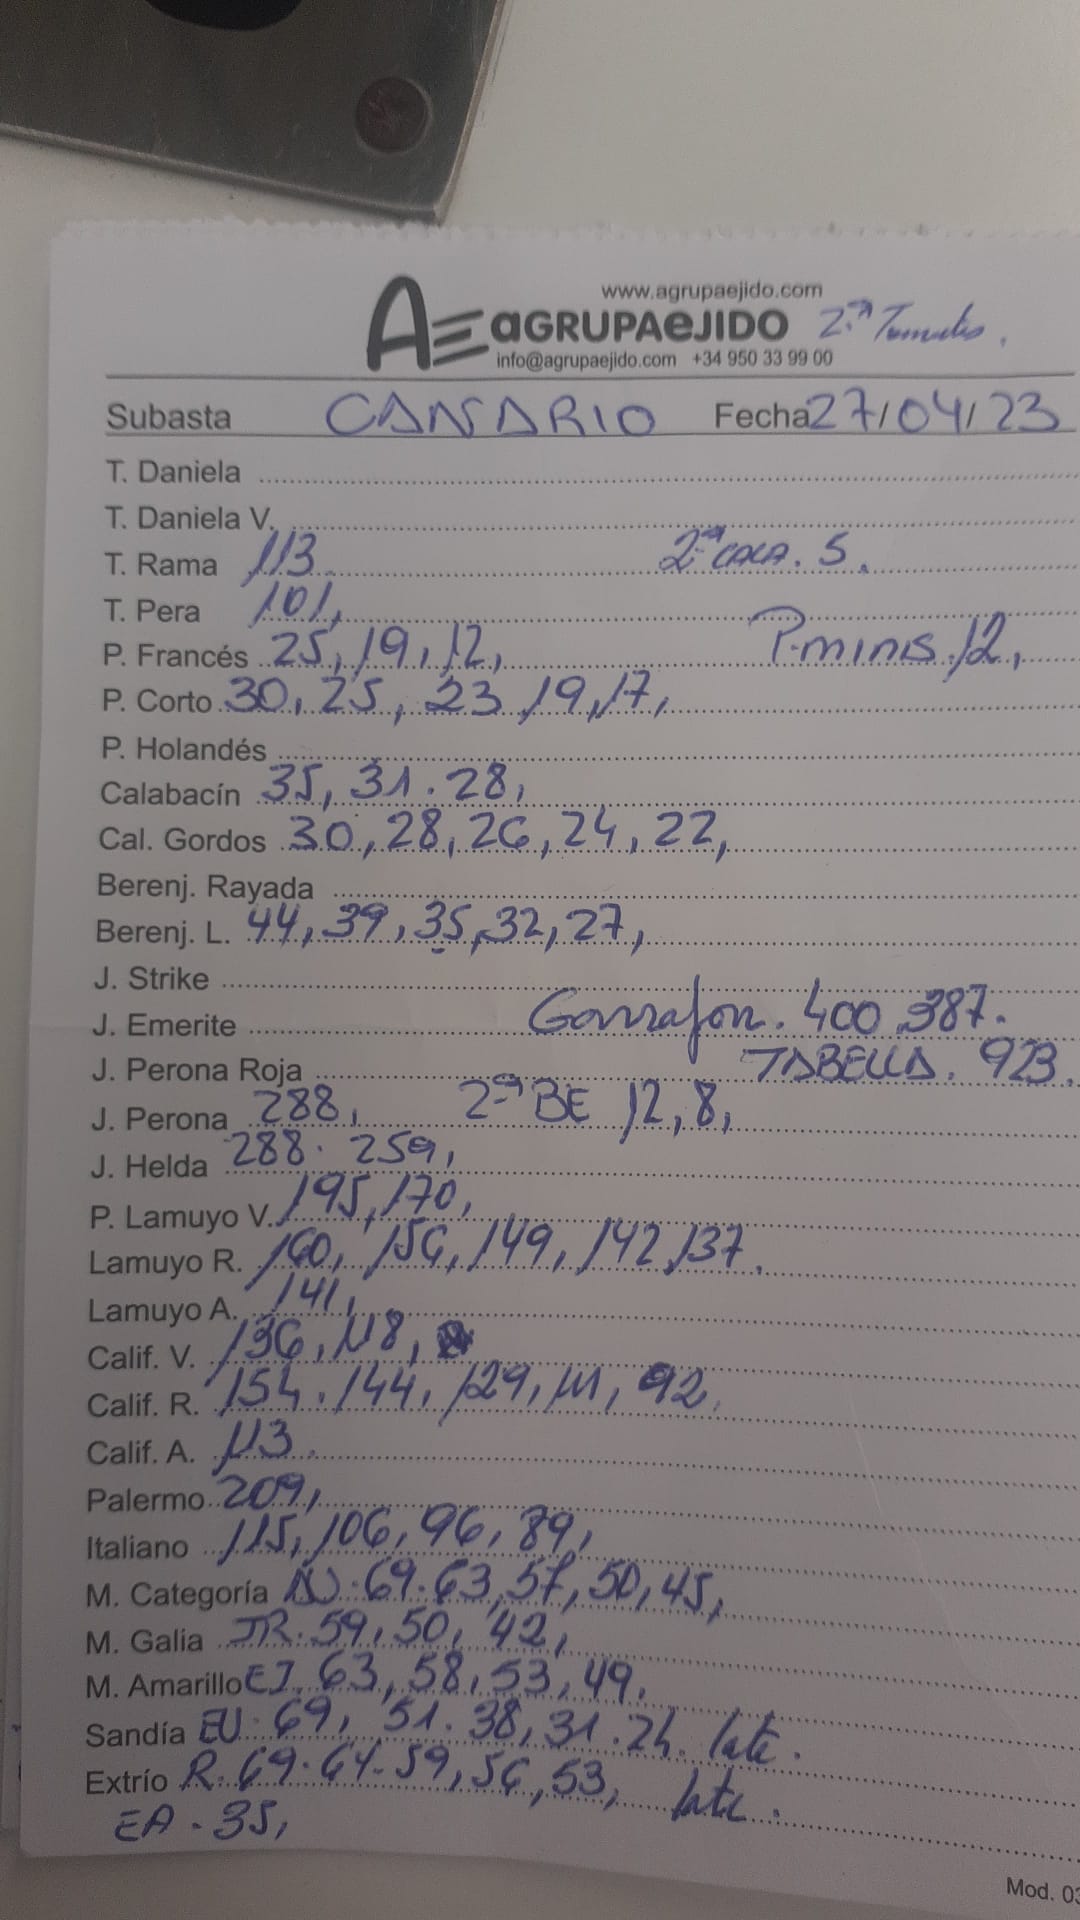 www.agrupaejido.com
AE aGRUPAeJIDO 2.ª
info@agrupaejido.com +34 950 33 99 00
Subasta CANARIO Fecha 27/04/23
T. Daniela
T. Daniela V.
T. Rama 113. 2ª CALA. 5.
T. Pera 101,
P. Francés 25, 19, 12, P-minis. 12,
P. Corto 30, 25, 23 19, 17,
P. Holandés
Calabacín 35, 31. 28,
Cal. Gordos 30, 28, 26, 24, 22,
Berenj. Rayada
Berenj. L. 44, 39, 35, 32, 27,
J. Strike
J. Emerite Garrafon. 400 387.
J. Perona Roja TABELLA. 923.
J. Perona 288, 2ª BE 12, 8,
J. Helda 288. 259,
P. Lamuyo V. 195, 170,
Lamuyo R. 160, 156, 149, 142, 137.
Lamuyo A. 141,
Calif. V. 136, 118,
Calif. R. 154. 144, 129, 111, 92.
Calif. A. 113.
Palermo 209,
Italiano 115, 106, 96, 89,
M. Categoría 69. 63, 57, 50, 45,
M. Galia JR. 59, 50, 42,
M. Amarillo EJ. 63, 58, 53, 49.
Sandía EU. 69, 51. 38, 31. 24. late.
Extrío R. 69. 64-59, 56, 53, late.
EA. 35,
Mod. 03